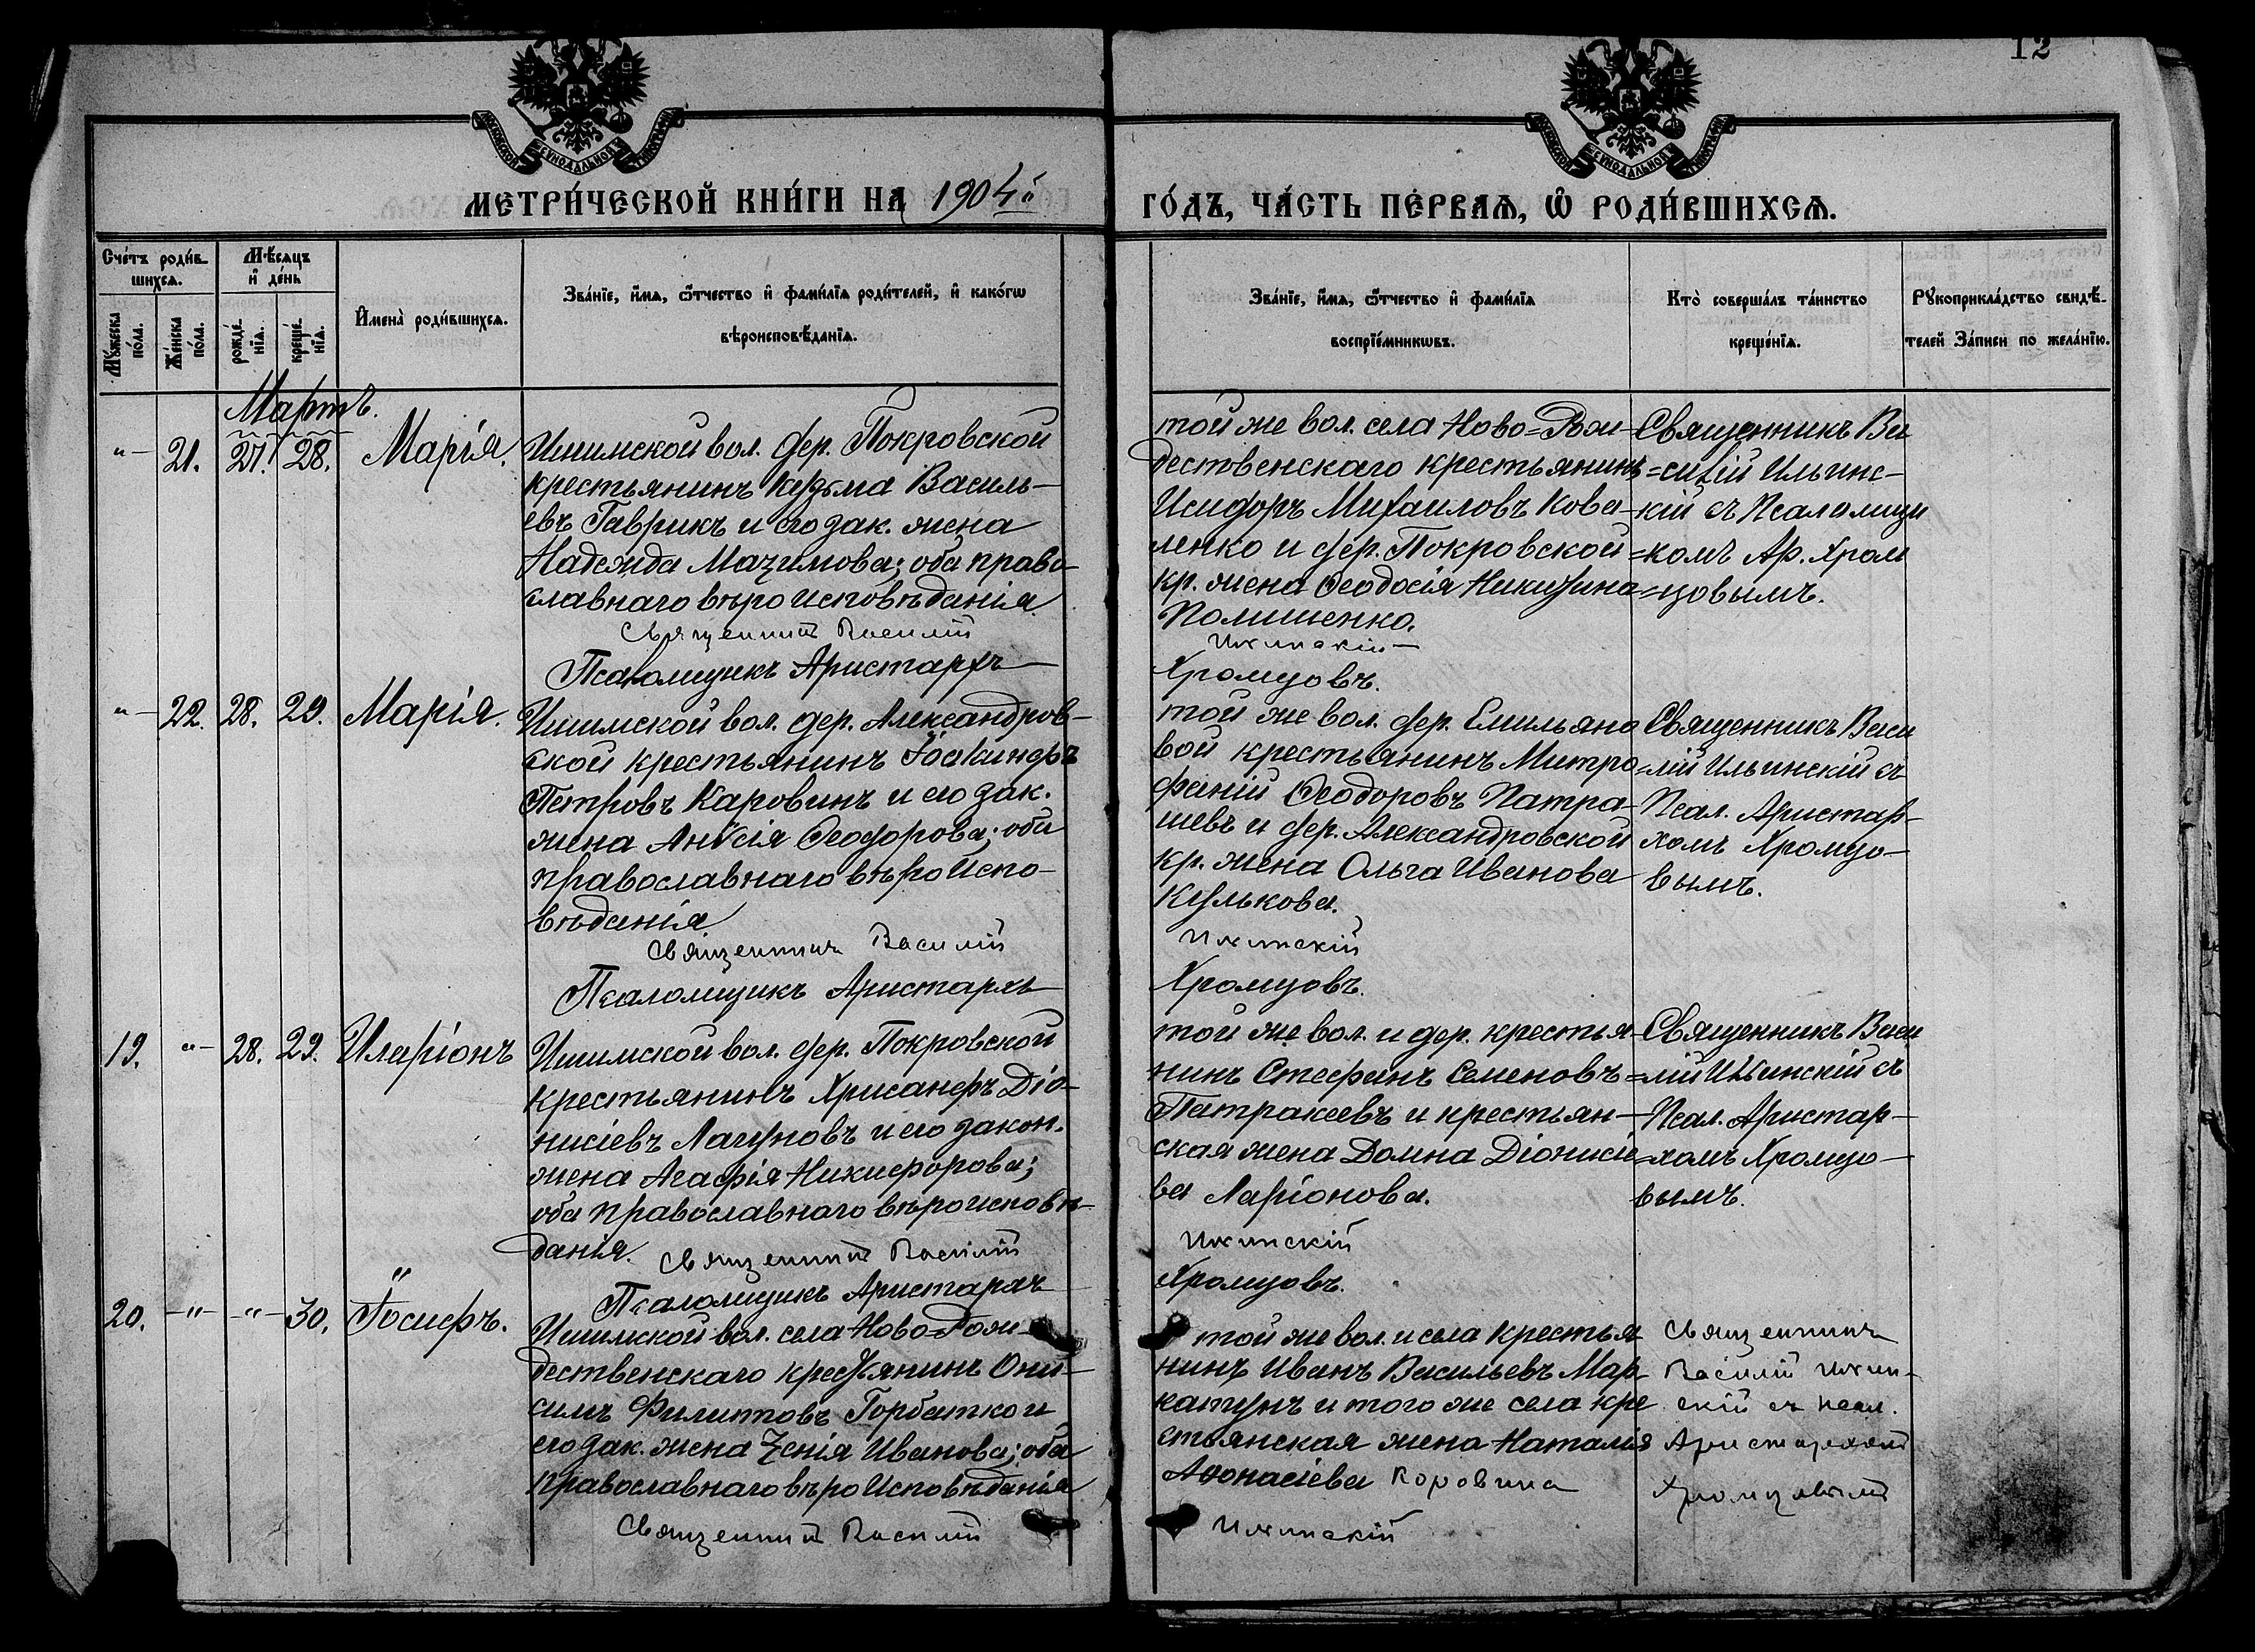 12
МОСКОВСКОЙ СѴНОДАЛЬНОЙ ТИПОГРАФІИ
МОСКОВСКОЙ СѴНОДАЛЬНОЙ ТИПОГРАФІИ
МЕТРИ́ЧЕСКОЙ КНИ́ГИ НА 1904й
ГО́ДЪ, ЧА́СТЬ ПЕ́РВАѦ, Ѡ РОДИ́ВШИХСѦ.
Сче́тъ роди́в-
шихсѧ.
Мꙋ́жеска по́ла.
Же́нска по́ла.
Мѣ́сѧцъ
и҆ де́нь
рожде́-
нїѧ.
креще́-
нїѧ.
И҆мена̀ роди́вшихсѧ.
Зва́нїе, и҆́мѧ, ѻ҆́тчество и҆ фами́лїѧ роди́телей, и҆ како́гѡ
вѣроисповѣ́данїѧ.
Зва́нїе, и҆́мѧ, ѻ҆́тчество и҆ фами́лїѧ
воспрїе́мникѡвъ.
Кто̀ соверша́лъ та́инство
креще́нїѧ.
Рꙋкоприкла́дство свидѣ́-
телей За́писи по жела́нїю.
Мартъ.
"- 21. 27. 28. Марія.
Ишимской вол. дер. Покровской
крестьянинъ Кузьма Василь-
евъ Гаврикъ и его зак. жена
Надежда Маѯимова; оба право-
славнаго вѣроисповѣданія
Священникъ Василій
Псаломщикъ Аристархъ
той же вол. села Ново=Рож-
дественскаго крестьянинъ
Исидоръ Михаиловъ Кова-
ленко и дер. Покровской
кр. жена Ѳеодосія Никитина
Полишенко.
Ильинскій
Хромцовъ.
Священникъ Ва
=силій Ильинс-
кій съ Псаломщи
=комъ Ар. Хром
=цовымъ.
"- 22. 28. 29. Марія.
Ишимской вол. дер. Александров-
ской крестьянинъ Іоакинфъ
Петровъ Каровинъ и его зак.
жена Анѵсія Ѳеодорова; оба
православнаго вѣроиспо-
вѣданія
Священникъ Василій
Псаломщикъ Аристархъ
той же вол. дер. Емильяно
вой крестьянинъ Митро
фаній Ѳеодоровъ Патра-
шевъ и дер. Александровской
кр. жена Ольга Иванова
Кулькова.
Ильинскій
Хромцовъ.
Священникъ Васи
=лій Ильинскій съ
Псал. Аристар-
хомъ Хромцо-
вымъ.
19. "- 28. 29. Иларіонъ
Ишимской вол. дер. Покровской
крестьянинъ Хрисанфъ Діо-
нисіевъ Лагуновъ и его закон.
жена Агафія Никифорова;
оба православнаго вѣроисповѣ-
данія.
Священникъ Василій
Псаломщикъ Аристархъ
той же вол. и дер. крестья-
нинъ Стефанъ Семеновъ
Патракеевъ и крестьян-
ская жена Домна Діонисіе
ва Ларіонова.
Ильинскій
Хромцовъ.
Священникъ Васи
=лій Ильинскій съ
Псал. Аристар-
=хомъ Хромцо-
вымъ.
20. -"- -"- 30. Іосифъ.
Ишимской вол. села Ново=Рож-
дественскаго крестьянинъ Они-
симъ Филиповъ Горбатко и
его зак. жена Ѯенія Иванова; оба
православнаго вѣроисповѣданія
Священникъ Василій
той же вол. и села крестья
нинъ Иванъ Васильевъ Мар
катунъ и того же села кре
стьянская жена Наталія
Аѳонасіева Коровина
Ильинскій
Священникъ
Василій Ильин-
скій съ псал.
Аристархомъ
Хромцовымъ